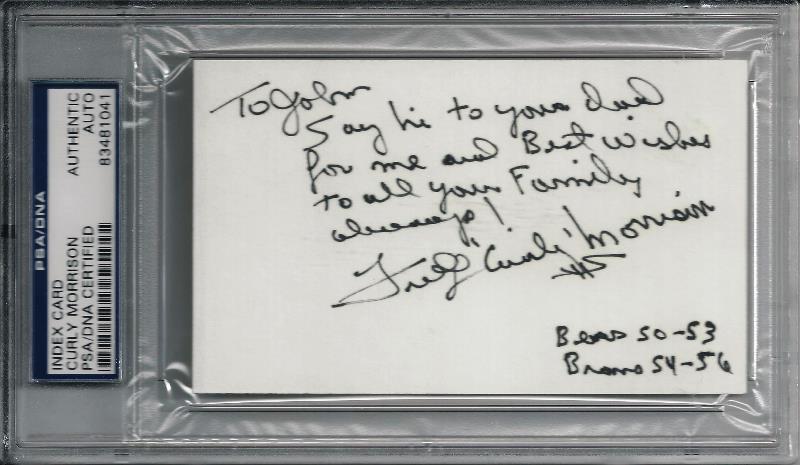 PSA/DNA
INDEX CARD
CURLY MORRISON
PSA/DNA CERTIFIED
AUTHENTIC
AUTO
83481041
To John
Say hi to your dad
for me and Best wishes
to all your Family
always!
Fred "Curly" Morrison
Bears 50-53
Browns 54-56